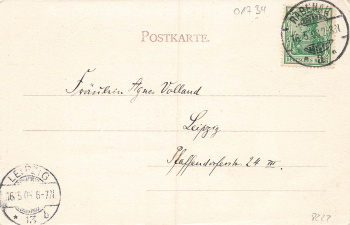 01734
POSTKARTE.
RABENAU
16.5.03
Fräulein Agnes Volland
Leipzig
Pfaffendorferstr. 24 III.
LEIPZIG
16.5.03. 6-7N.
* 13 b